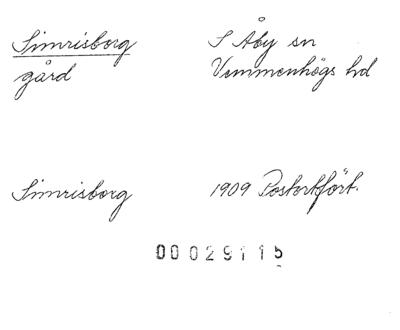 Simrisborg S Åby sn
gård Vemmenhögs hd
Simrisborg 1909 Postortfört.
00029115